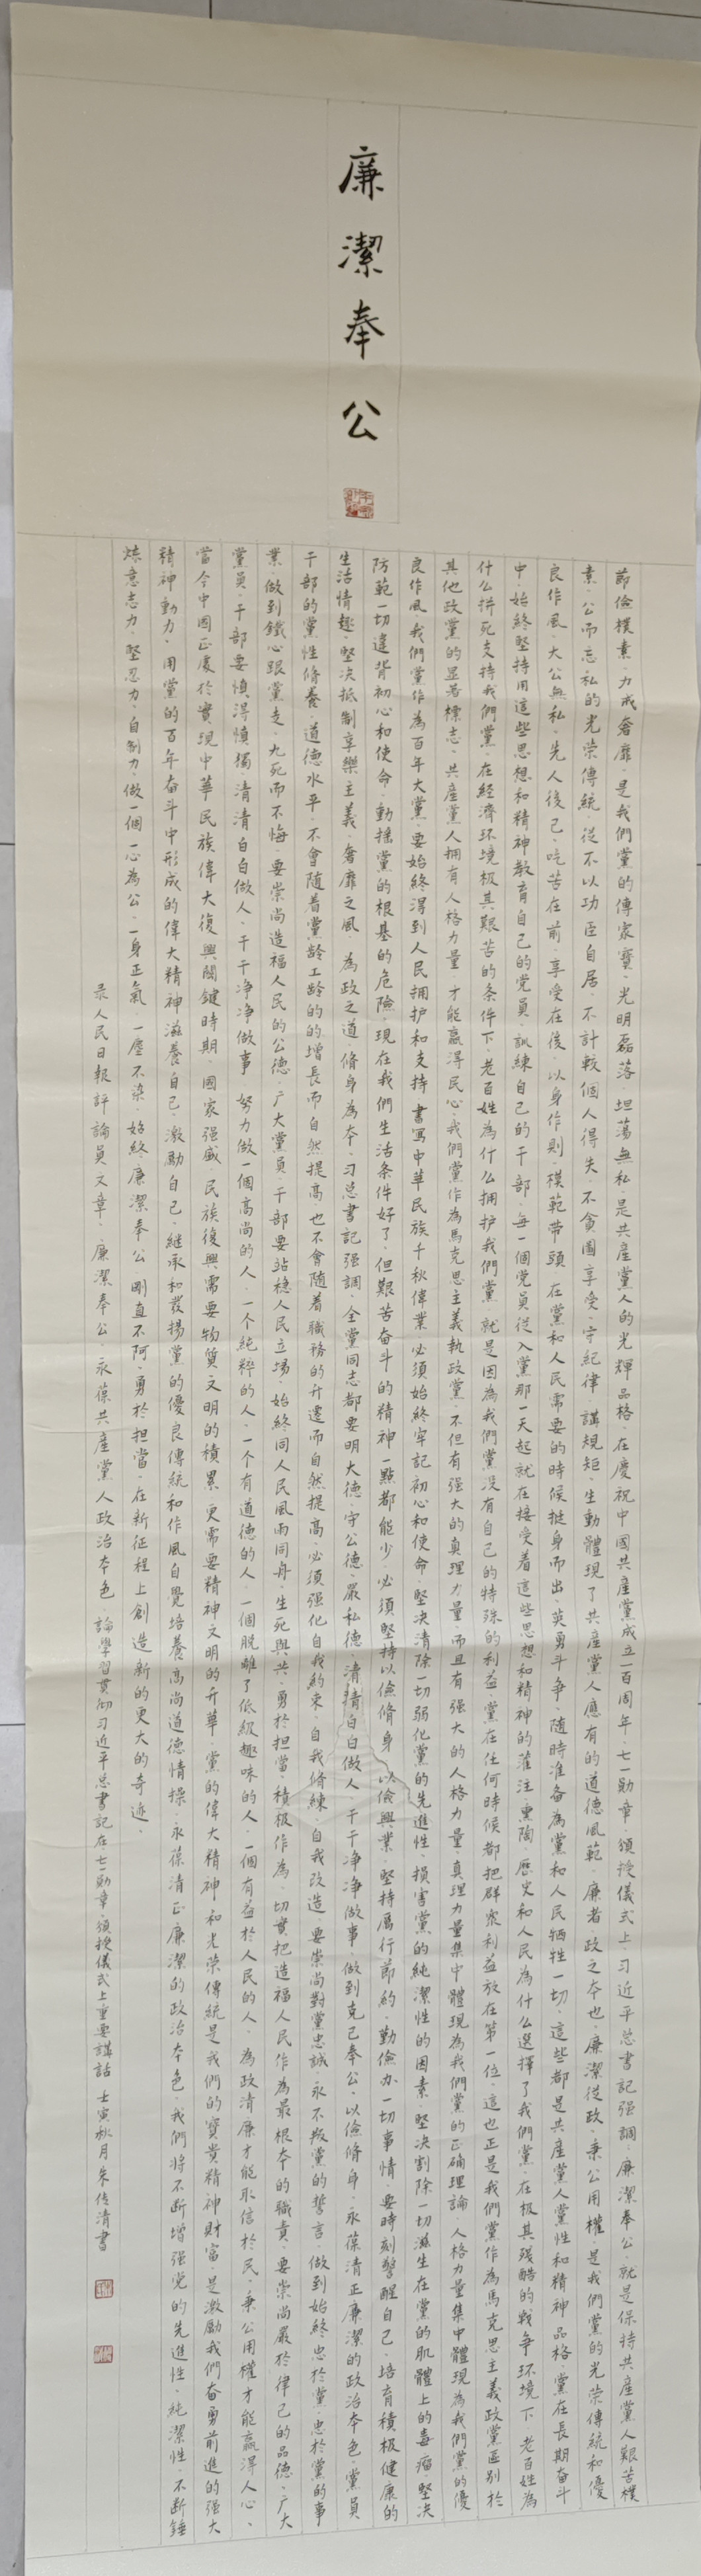 廉潔奉公
節儉樸素·力戒奢靡·是我們黨的傳家寶·光明磊落·坦蕩無私·是共産黨人的光輝品格·在慶祝中國共産黨成立一百周年·七一勛章·頒授儀式上·习近平总書記强調·廉潔奉公·就是保持共産黨人艱苦樸
素·公而忘私的光荣傳統·從不以功臣自居·不計較個人得失·不貪圖享受·守紀律·講規矩·生動體現了共産黨人應有的道德風範·廉者·政之本也·廉潔從政·秉公用權·是我們黨的光荣傳統和優
良作風·大公無私·先人後己·吃苦在前·享受在後·以身作則·模範带頭·在黨和人民需要的時候挺身而出·英勇斗争·随時准备為黨和人民牺牲一切·這些都是共産黨人黨性和精神品格·黨在長期奋斗
中·始終堅持用這些思想和精神教育自己的党員·訓練自己的干部·每一個党員從入黨那一天起就在接受着這些思想和精神的灌注·熏陶·歷史和人民為什么選擇了我們黨·在极其残酷的战争环境下·老百姓為
什么拼死支持我們黨·在経濟环境极其艱苦的条件下·老百姓為什么拥护我們黨·就是因為我們黨没有自己的特殊的利益·黨在任何時候都把群众利益放在第一位·這也正是我們黨作為馬克思主義政黨區别於
其他政黨的显著標志·共産黨人拥有人格力量·才能贏得民心·我們黨作為馬克思主義執政黨·不但有强大的真理力量·而且有强大的人格力量·真理力量集中體現為我們黨的正确理論·人格力量集中體現為我們黨的優
良作風·我們黨作為百年大黨·要始終得到人民拥护和支持·書寫中華民族千秋偉業·必須始終牢記初心和使命·堅决清除一切弱化黨的先進性·損害黨的純潔性的因素·堅决割除一切滋生在黨的肌體上的毒瘤·堅决
防範一切違背初心和使命·動摇黨的根基的危險·現在我們生活条件好了·但艱苦奋斗的精神一點都能少·必須堅持以儉脩身·以儉興業·堅持厲行節約·勤儉办一切事情·要時刻警醒自己·培育積极健康的
生活情趣·堅决抵制享樂主義·奢靡之風·為政之道·脩身為本·习总書記强調·全黨同志都要明大德·守公德·嚴私德·清清白白做人·干干净净做事·做到克己奉公·以儉脩身·永葆清正廉潔的政治本色·黨員
干部的黨性脩養·道德水平·不會随着黨齡工龄的的增長而自然提高·也不會随着職務的升遷而自然提高·必須强化自我約束·自我脩練·自我改造·要崇尚對黨忠誠·永不叛黨的誓言·做到始終忠於黨·忠於黨的事
業·做到鐵心跟黨走·九死而不悔·要崇尚造福人民的公德·广大黨員·干部要站稳人民立場·始終同人民風雨同舟·生死與共·勇於担當·積极作為·切實把造福人民作為最根本的職責·要崇尚嚴於律己的品德·广大
黨員·干部要慎淂慎獨·清清白白做人·干干净净做事·努力做一個高尚的人·一个純粹的人·一个有道德的人·一個脱離了低級趣味的人·一個有益於人民的人·為政清廉才能取信於民·秉公用權才能贏得人心·
當今中國正處於實現中華民族偉大復興関鍵時期·國家强盛·民族復興需要物質文明的積累·更需要精神文明的升華·黨的偉大精神和光荣傳統是我們的寶貴精神財富·是激勵我們奋勇前進的强大
精神動力·用黨的百年奋斗中形成的偉大精神滋養自己·激勵自己·継承和發揚黨的優良傳統和作風·自覺培養高尚道德情操·永葆清正廉潔的政治本色·我們将不断增强党的先進性·純潔性·不断錘
煉意志力·堅忍力·自制力·做一個一心為公·一身正氣·一塵不染·始終廉潔奉公·剛直不阿·勇於担當·在新征程上創造新的更大的奇迹·
录人民日報評論員文章·廉潔奉公·永葆共産黨人政治本色·論學習貫彻习近平总書記在·七一勛章·頒授儀式上重要講話 壬寅秋月朱传清書